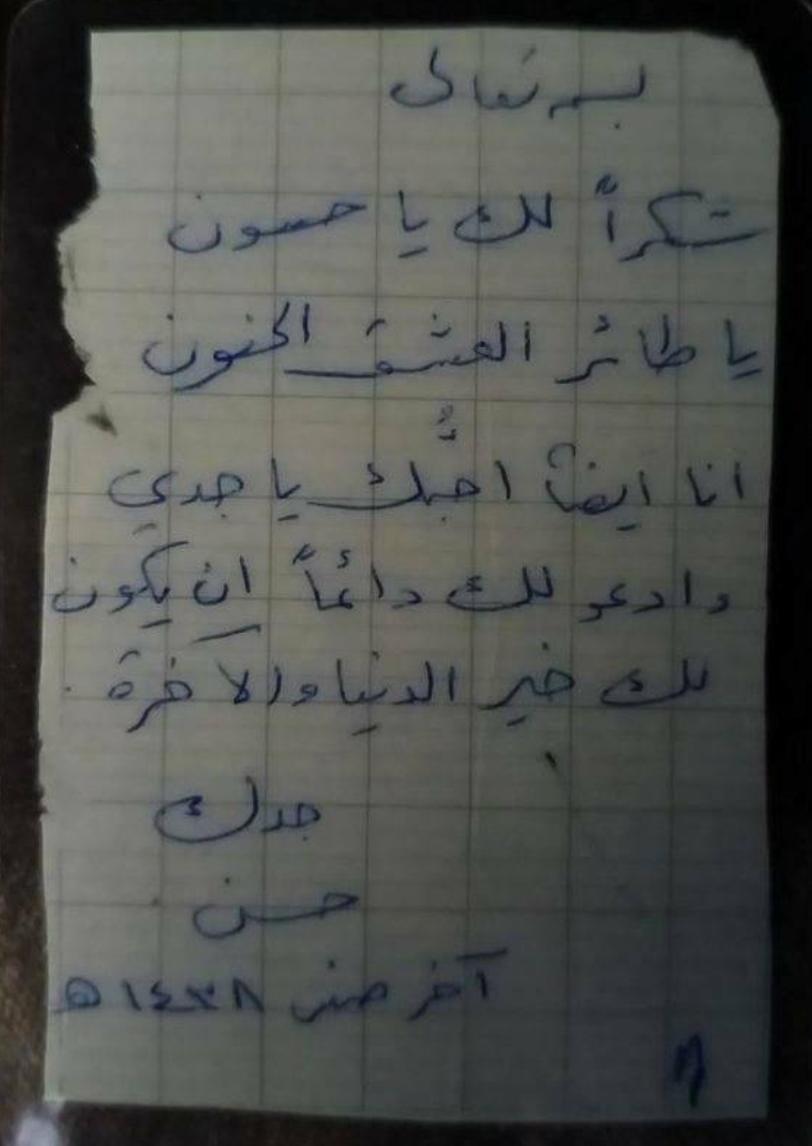 بسمه تعالى
شكراً لك يا حسون
يا طائر العشق الحنون
انا ايضاً احبُّك يا جدي
وادعو لك دائماً ان يكون
لك خير الدنيا والآخرة.
جدك
حسن
آخر صفر ١٤٣٨ ه